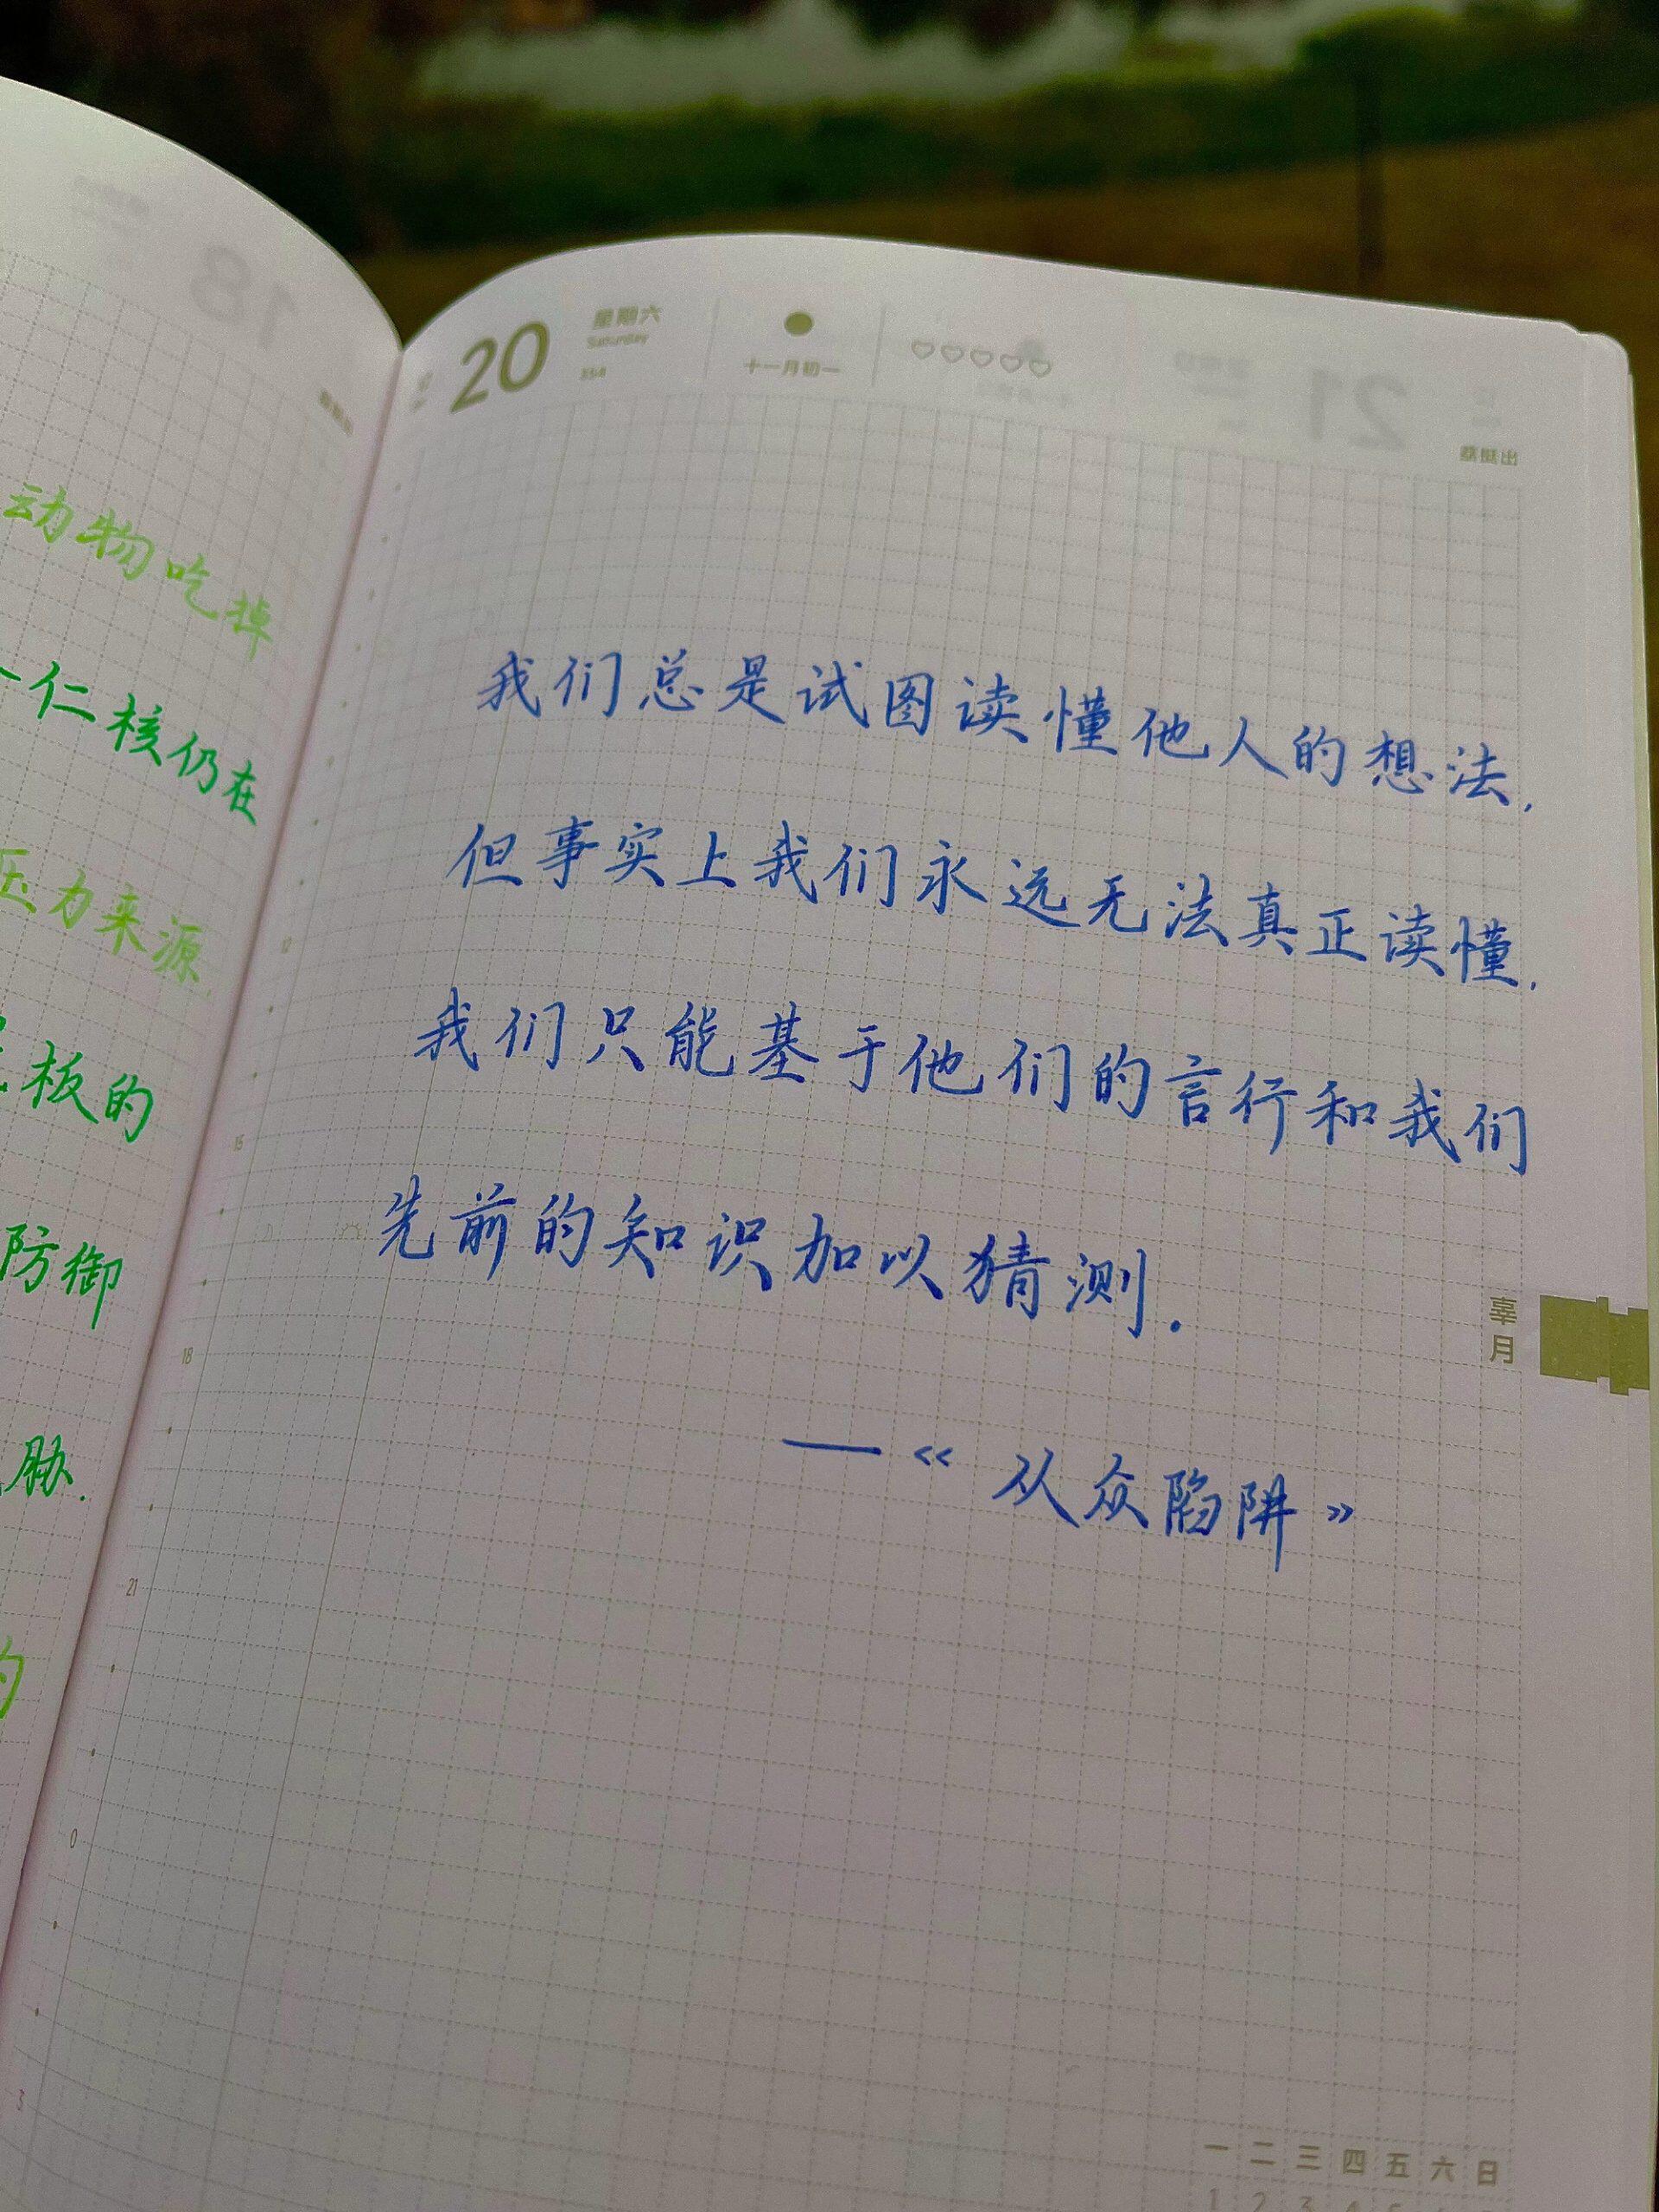 动物吃掉
仁核仍在
压力来源
板的
防御
胁.
的
18
20
星期六
Saturday
354
十一月初一
21
荔挺出
我们总是试图读懂他人的想法,
但事实上我们永远无法真正读懂,
我们只能基于他们的言行和我们
先前的知识加以猜测.
——《从众陷阱》
辜月
12
15
18
21
0
3
一 二 三 四 五 六 日
1 2 3 4 5 6